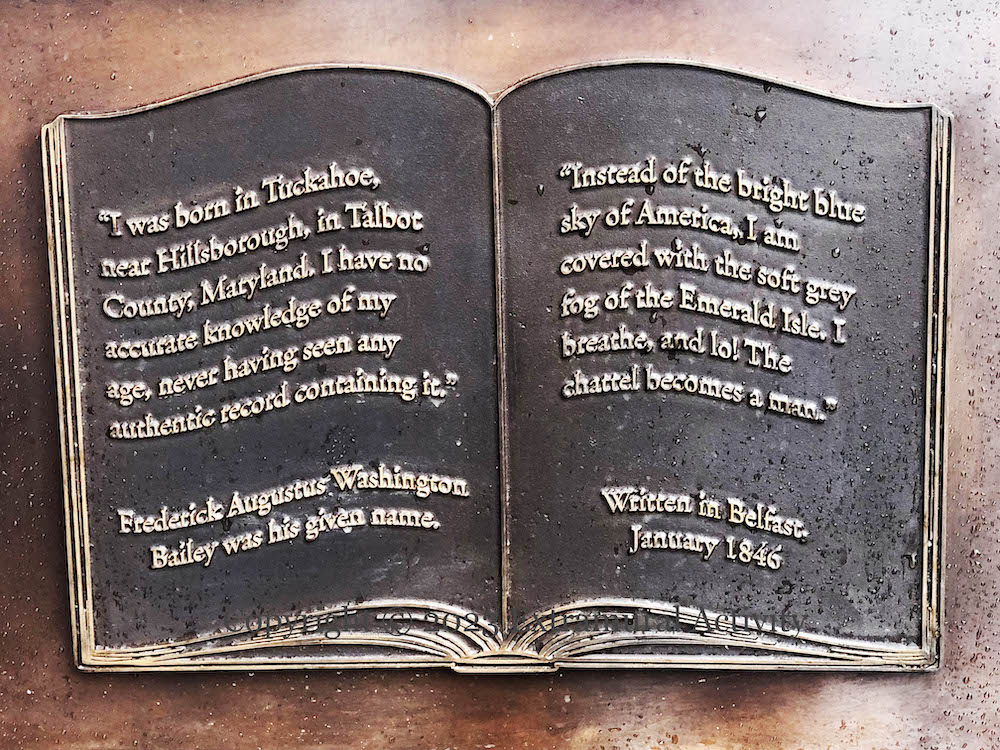 “I was born in Tuckahoe,
near Hillsborough, in Talbot
County, Maryland. I have no
accurate knowledge of my
age, never having seen any
authentic record containing it.”
Frederick Augustus Washington
Bailey was his given name.
“Instead of the bright blue
sky of America, I am
covered with the soft grey
fog of the Emerald Isle. I
breathe, and lo! The
chattel becomes a man.”
Written in Belfast.
January 1846
Copyright © Activity